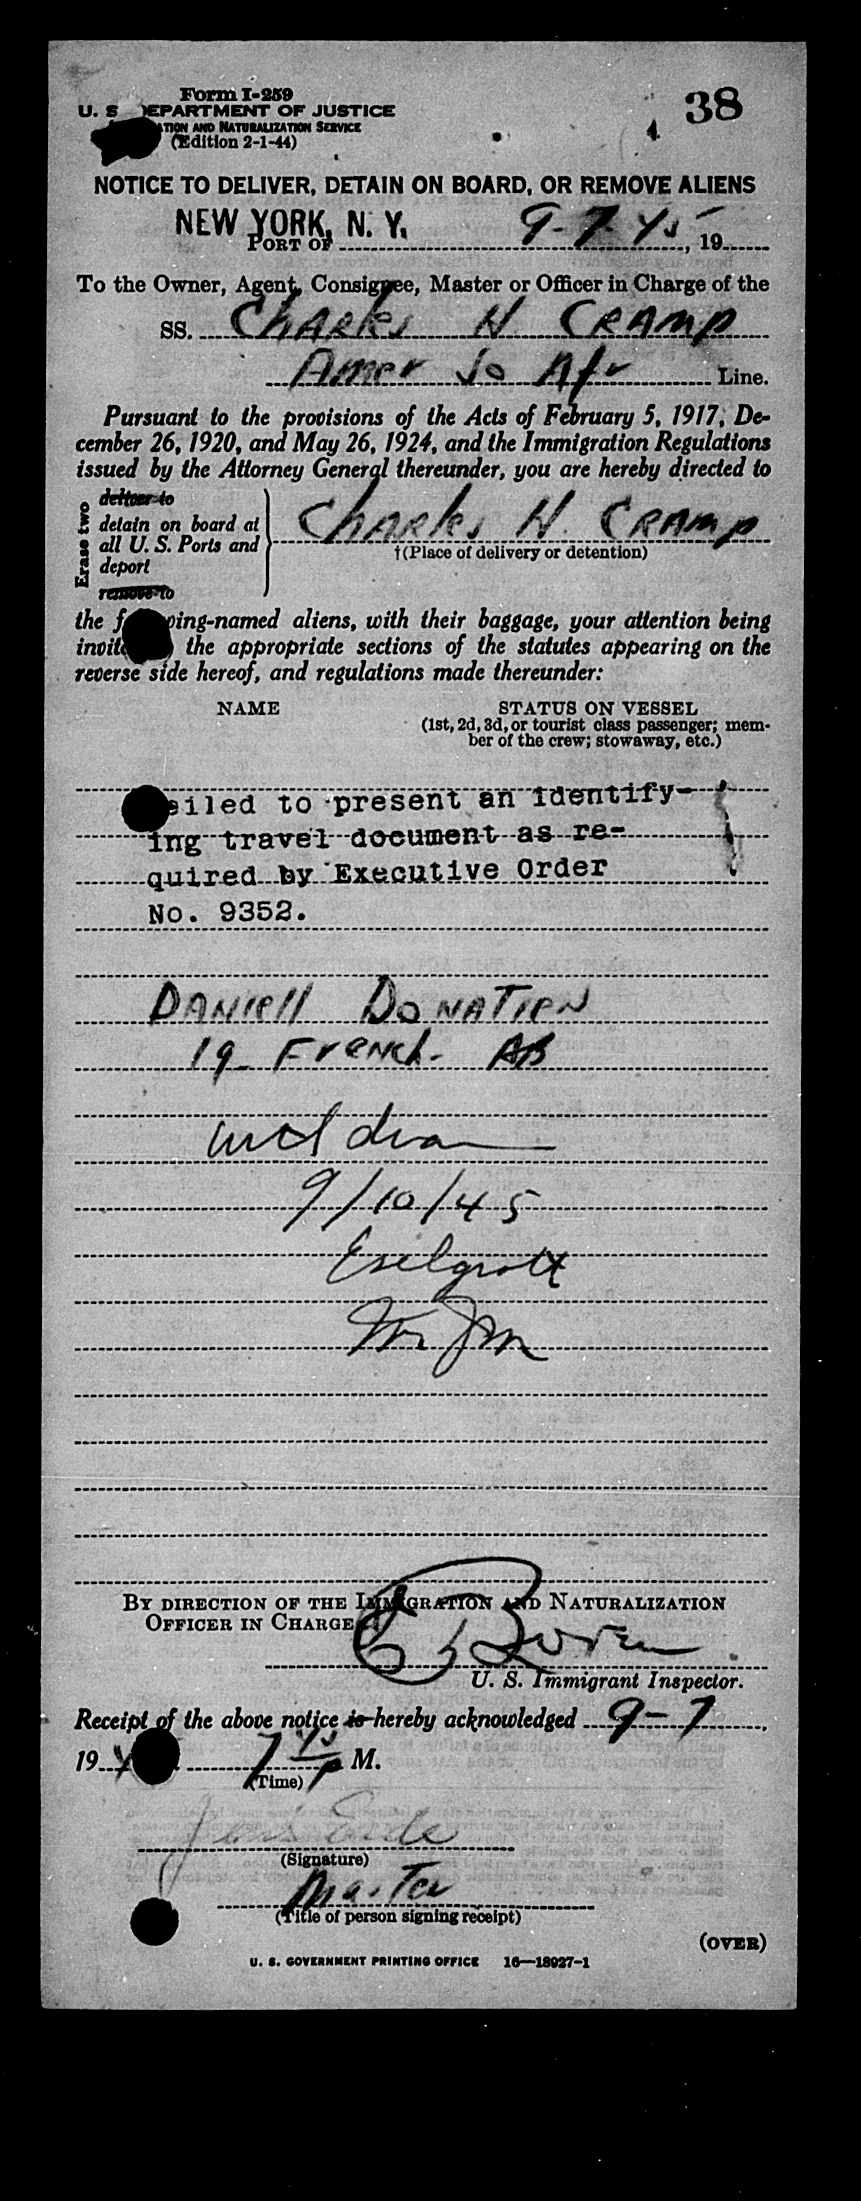 Form I-259
38
U. S. DEPARTMENT OF JUSTICE
AND NATURALIZATION SERVICE
(Edition 2-1-44)
NOTICE TO DELIVER, DETAIN ON BOARD, OR REMOVE ALIENS
NEW YORK, N. Y.
PORT OF 9-7-45, 19
To the Owner, Agent, Consignee, Master or Officer in Charge of the
SS. Charles H CRAMP
Amer So Afr Line.
Pursuant to the provisions of the Acts of February 5, 1917, De-
cember 26, 1920, and May 26, 1924, and the Immigration Regulations
issued by the Attorney General thereunder, you are hereby directed to
Erase two
deliver to
detain on board at
all U. S. Ports and
deport
remove to
Charles H. CRAMP
†(Place of delivery or detention)
the following-named aliens, with their baggage, your attention being
the appropriate sections of the statutes appearing on the
reverse side hereof, and regulations made thereunder:
NAME
STATUS ON VESSEL
(1st, 2d, 3d, or tourist class passenger; mem-
ber of the crew; stowaway, etc.)
ailed to present an identify-
ing travel document as re-
quired by Executive Order
No. 9352.
DANIEll DONATIEN
19 French. AB
9/10/45
BY DIRECTION OF THE IMMIGRATION AND NATURALIZATION
OFFICER IN CHARGE
U. S. Immigrant Inspector.
Receipt of the above notice is hereby acknowledged 9-7,
19 7 45 p M.
(Time)
(Signature)
Master
(Title of person signing receipt)
(OVER)
U. S. GOVERNMENT PRINTING OFFICE 16—18927-1